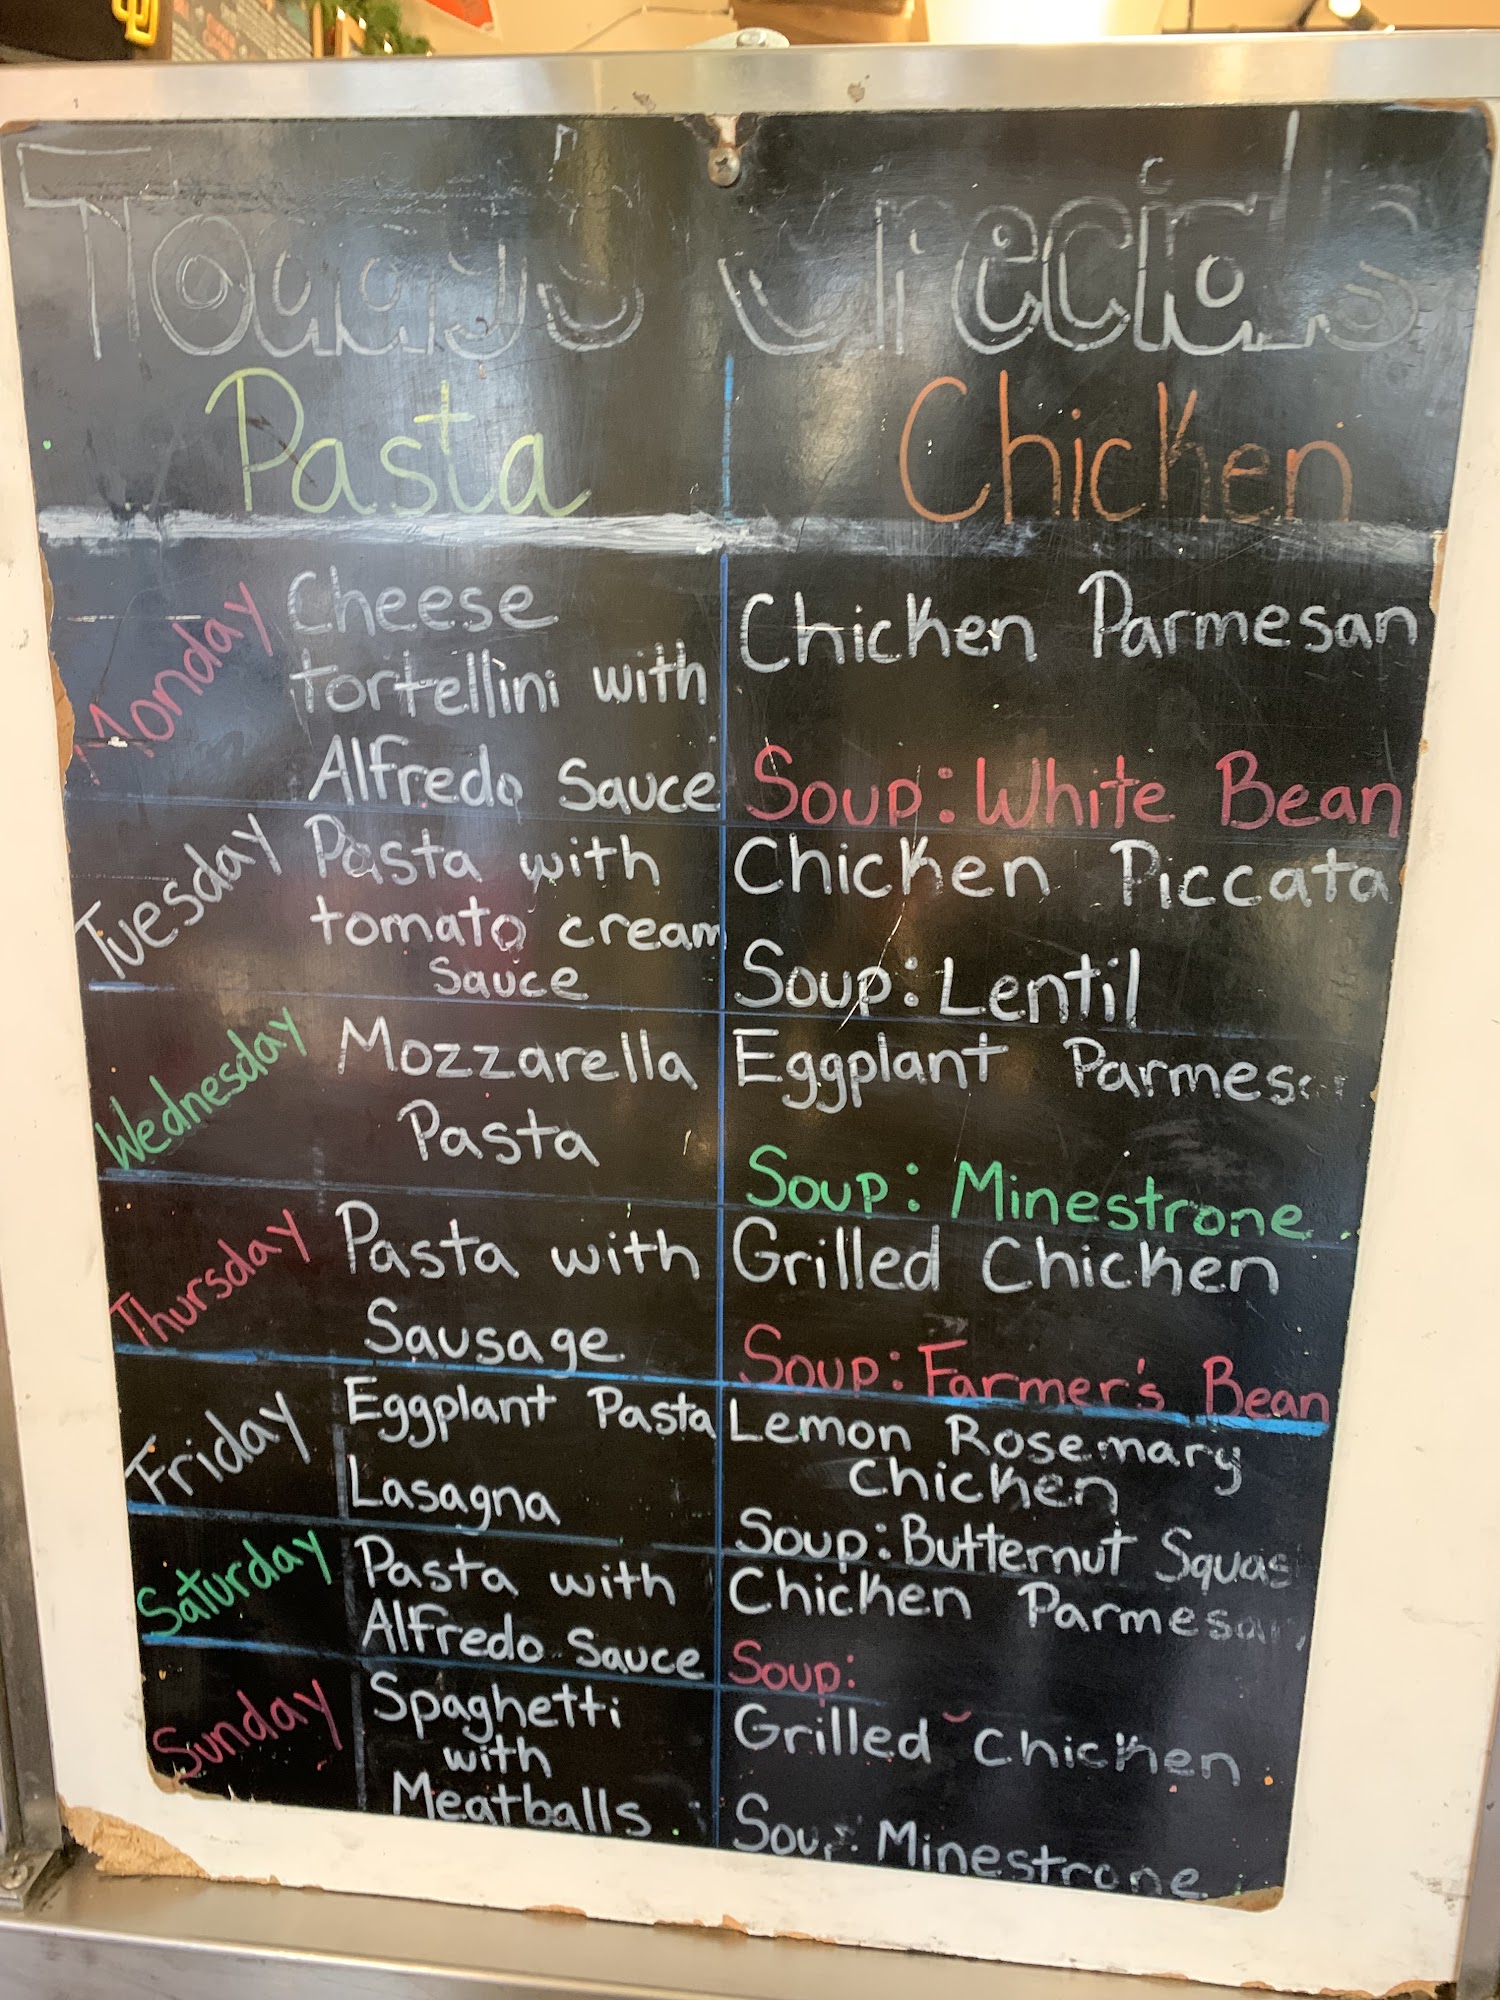 Today's Specials
Pasta
Chicken
Monday
Cheese
tortellini with
Alfredo Sauce
Chicken Parmesan
Soup: White Bean
Tuesday
Pasta with
tomato cream
sauce
Chicken Piccata
Soup: Lentil
Wednesday
Mozzarella
Pasta
Eggplant Parmesa
Soup: Minestrone
Thursday
Pasta with
Sausage
Grilled Chicken
Soup: Farmer's Bean
Friday
Eggplant Pasta
Lasagna
Lemon Rosemary
Chicken
Soup: Butternut Squas
Saturday
Pasta with
Alfredo Sauce
Chicken Parmesan
Soup:
Sunday
Spaghetti
with
Meatballs
Grilled Chicken
Soup: Minestrone